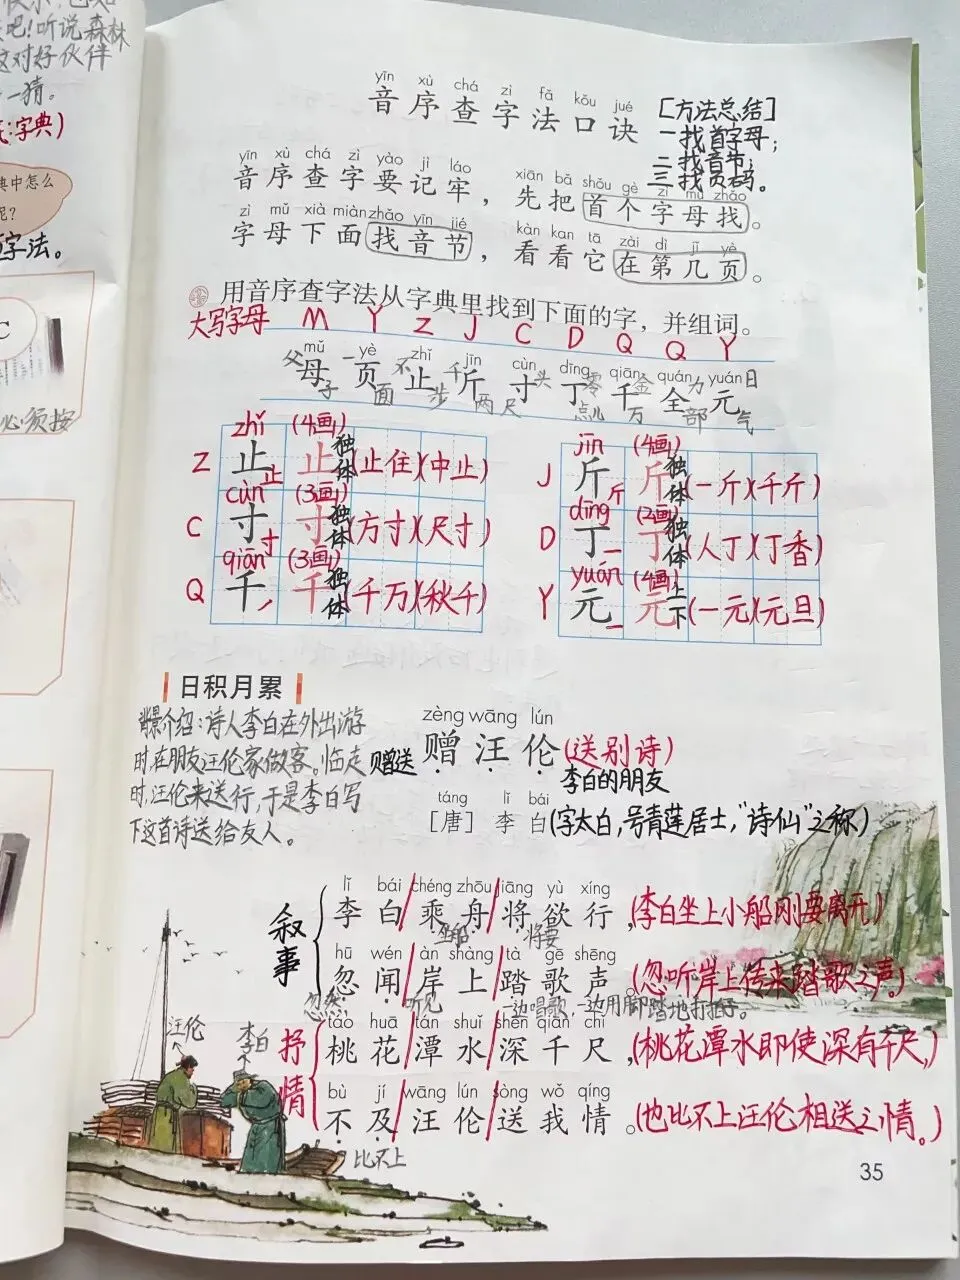 吧！听说森林
这对好伙伴
一猜。
字典）
典中怎么
呢？
字法。
C
必须按
yīn xù chá zì fǎ kǒu jué
音序查字法口诀
[方法总结]
一找首字母；
二找音节；
三找页码。
yīn xù chá zì yào jì láo
音序查字要记牢，
xiān bǎ shǒu gè zì mǔ zhǎo
先把首个字母找。
zì mǔ xià miàn zhǎo yīn jié
字母下面找音节，
kàn kan tā zài dì jǐ yè
看看它在第几页。
用音序查字法从字典里找到下面的字，并组词。
大写字母 M Y Z J C D Q Q Y
mǔ yè zhǐ jīn cùn dīng qiān quán yuán
父 一 不 千 头 零 金 力 日
母 页 止 斤 寸 丁 千 全 元
子 面 步 两 尺 点儿 万 部 气
zhǐ (4画)
Z 止 止 止 独体 (止住)(中止)
cùn (3画)
C 寸 寸 寸 独体 (方寸)(尺寸)
qiān (3画)
Q 千 千 独体 (千万)(秋千)
jīn (4画)
J 斤 斤 斤 独体 (一斤)(千斤)
dīng (2画)
D 丁 丁 独体 (人丁)(丁香)
yuán (4画)
Y 元 元 上下 (一元)(元旦)
日积月累
背景介绍：诗人李白在外出游
时，在朋友汪伦家做客。临走
时，汪伦来送行，于是李白写
下这首诗送给友人。
zèng wāng lún
赠送 赠汪伦 (送别诗)
李白的朋友
táng lǐ bái
[唐] 李白 (字太白，号青莲居士，“诗仙”之称)
叙事
lǐ bái chéng zhōu jiāng yù xíng
李白/乘舟/将欲行，(李白坐上小船刚要离开)
坐船 将要
hū wén àn shàng tà gē shēng
忽闻/岸上/踏歌声。(忽听岸上传来踏歌之声。)
忽然 听见 一边唱歌，一边用脚踏地打拍子。
抒情
táo huā tán shuǐ shēn qiān chǐ
桃花/潭水/深千尺，(桃花潭水即使深有千尺)
bù jí wāng lún sòng wǒ qíng
不及/汪伦/送我情。(也比不上汪伦相送之情。)
比不上
汪伦
李白
35